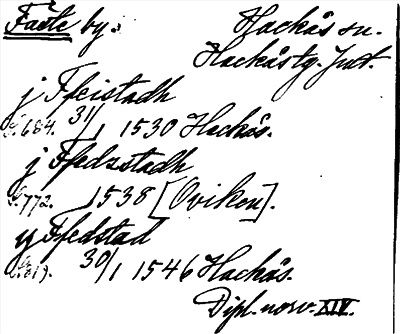 Faste by. Hackås sn.
Hackåstg. Jmt.
j Ffeistadh
s. 684. 31/1 1530 Hackås.
j Ffedzstadh
s. 772. 1538 [Oviken].
y Ffedstad
s. 819. 30/1 1546 Hackås.
Dipl. norv. XIV.